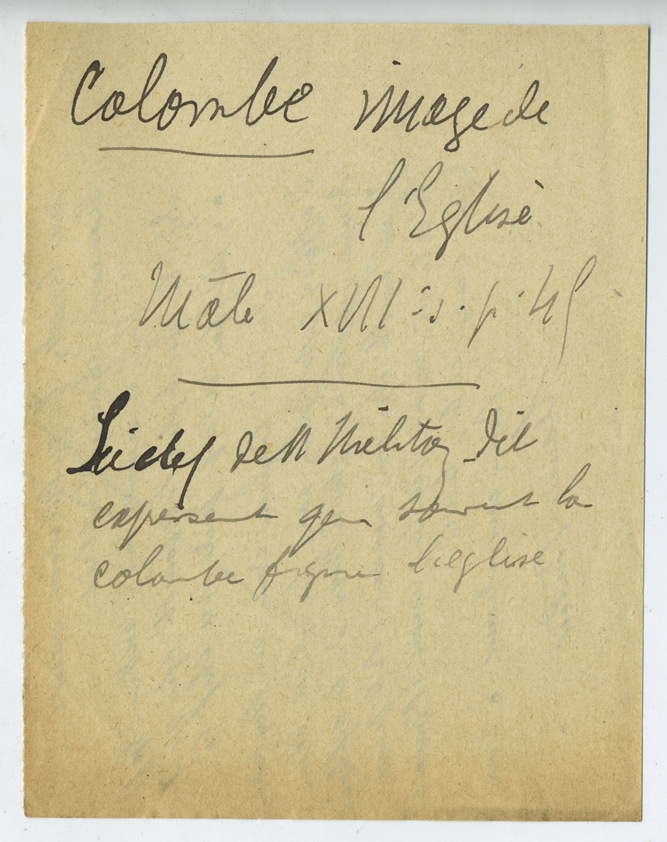 Colombe image de
l'Eglise
Mâle XIIIe s. p. 45
de St Méliton dit
expressément que souvent la
colombe figure l'église